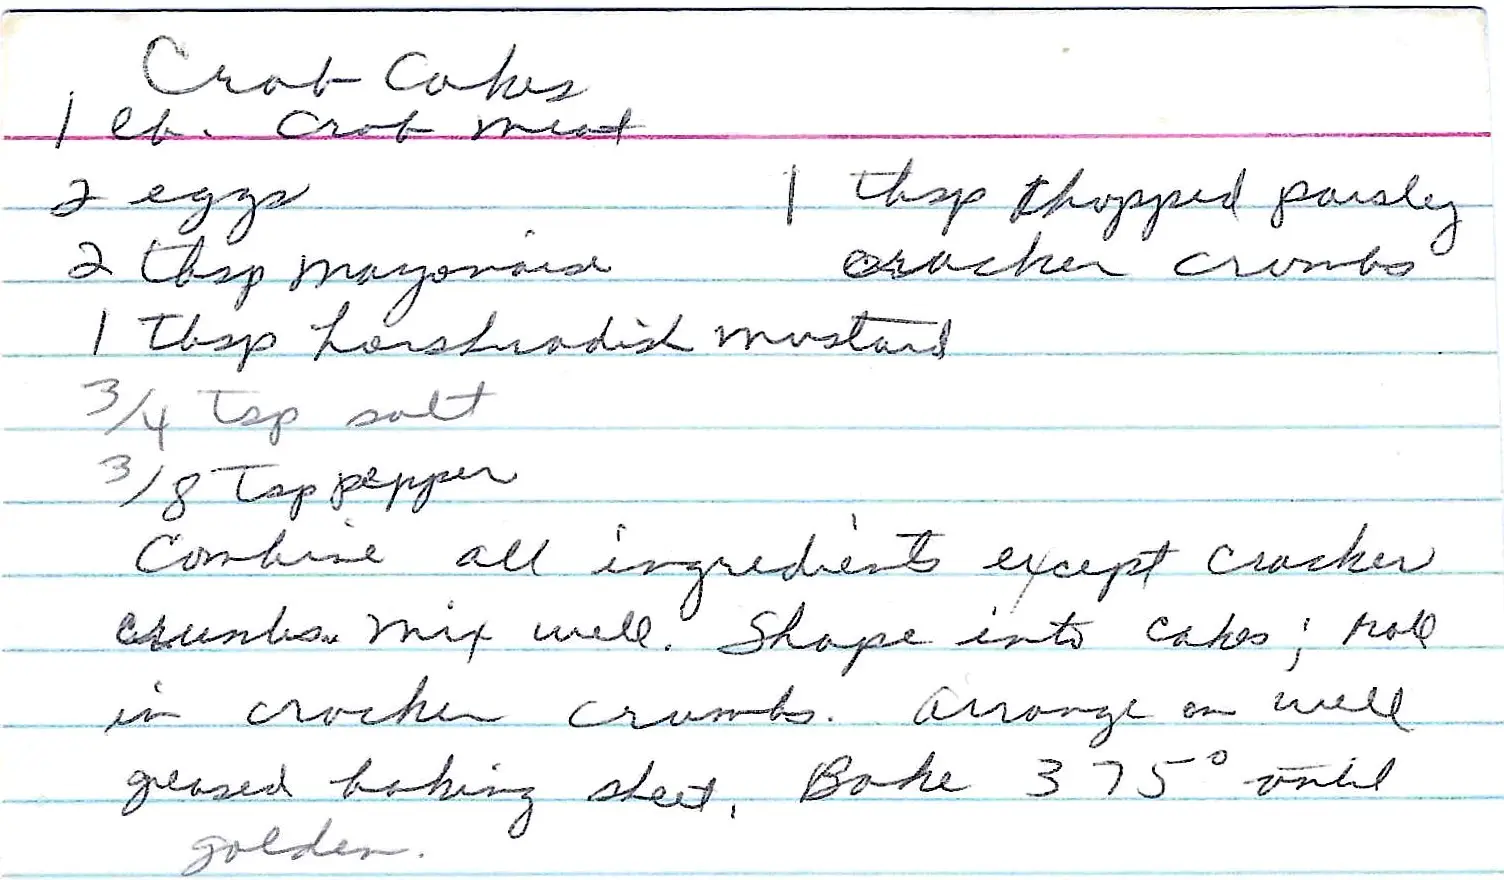 Crab Cakes
1 lb. Crab meat
2 eggs
1 tbsp chopped parsley
2 tbsp mayonaise
cracker crumbs
1 tbsp horshradish mustard
3/4 tsp salt
3/8 tsp pepper
Combine all ingredients except cracker
crumbs. Mix well. Shape into cakes; roll
in cracker crumbs. Arrange on well
greased baking sheet. Bake 375° until
golden.